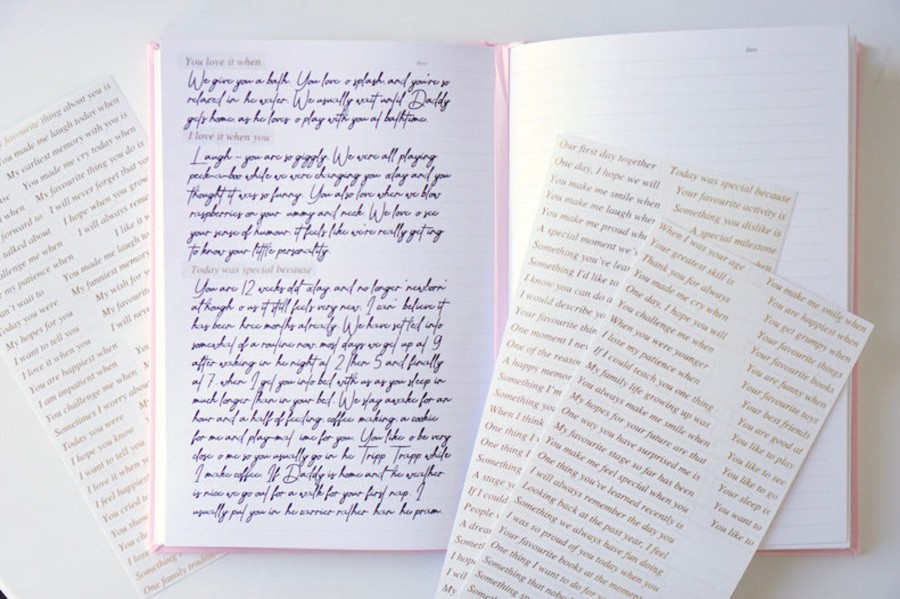 You love it when
date
We give you a bath. You love to splash and you're so
relaxed in the water. We usually wait until Daddy
gets home as he loves to play with you at bathtime.
I love it when you
Laugh - you are so giggly. We were all playing
peek-a-boo while we were changing you today and you
thought it was so funny. You also love when we blow
raspberries on your tummy and neck. We love to see
your sense of humour, it feels like we're really getting
to know your little personality.
Today was special because
You are 12 weeks old today and no longer 'newborn'
although to us it still feels very new. I can't believe it
has been three months already. We have settled into
somewhat of a routine now, most days we get up at 9
after waking in the night at 2 then 5 and finally
at 7 when I get you into bed with us as you sleep in
much longer than in your bed. We stay awake for an
hour and a half of feeding, coffee making, a cookie
for me and play-mat time for you. You like to be very
close to me so you usually go in the Tripp Trapp while
I make coffee. If Daddy is home and the weather
is nice we go out for a walk for your first nap. I
usually put you in the carrier rather than the pram.
date
favourite thing about you is
You made me laugh today when
My earliest memory with you is
You made me cry today when
My favourite thing you do is
I will never forget that you
I hope when you grow
I will always reme
forward to
talked about
I like it
challenge me when
my patience when
You made me laugh to
My funniest memory
My wish for yo
My favourite
I will neve
can't wait to
Today you were
My hopes for you
I want to tell you
I love it when you
You are happiest when
I am impatient when
You challenge me when
Sometimes I worry about
Today you were
I hope you know
I want to tell you
I love it when you
I feel happiest
You cried to
You show
You cha
I lose
Something
One family tradition
Our first day together
One day, I hope we will
You make me smile when
You make me laugh when
You make me proud wh
A special moment we'
Something you've lea
Something I'd like to
I know you can do a
I would describe yo
Your favourite thin
One moment I nev
One of the reason
A happy memor
Something I'm
Something you
When I think
One thing I
One thing
Something
A stage y
If I could
People
A drea
Something
I hop
I wil
My
Today was special because
Your favourite activity is
Something you dislike is
A special milestone
When I was your age
Your greatest skill is
Thank you for always
You made me cry when
One day, I hope we will
You challenge me when
When you were younger
I lose my patience when
If I could teach you one thing
My family life growing up was
You always make me smile when
My hopes for your future are that
One way you have surprised me is
My favourite stage so far has been
You make me feel special when you
One thing you've learned recently is
I will always remember the day you
Looking back at the past year, I feel
Something we always have fun doing
I was so proud of you today when you
Your favourite books at the moment
One thing I want to do for
Something that nobo
You make me smile when
You are happiest when
You get grumpy when
Your favourite things
Your favourite books
You are funny when
Your favourite toys
Your best friends
You are good at
You like to play
You like to see
You like to go
Your sleep is
You want to
You like to